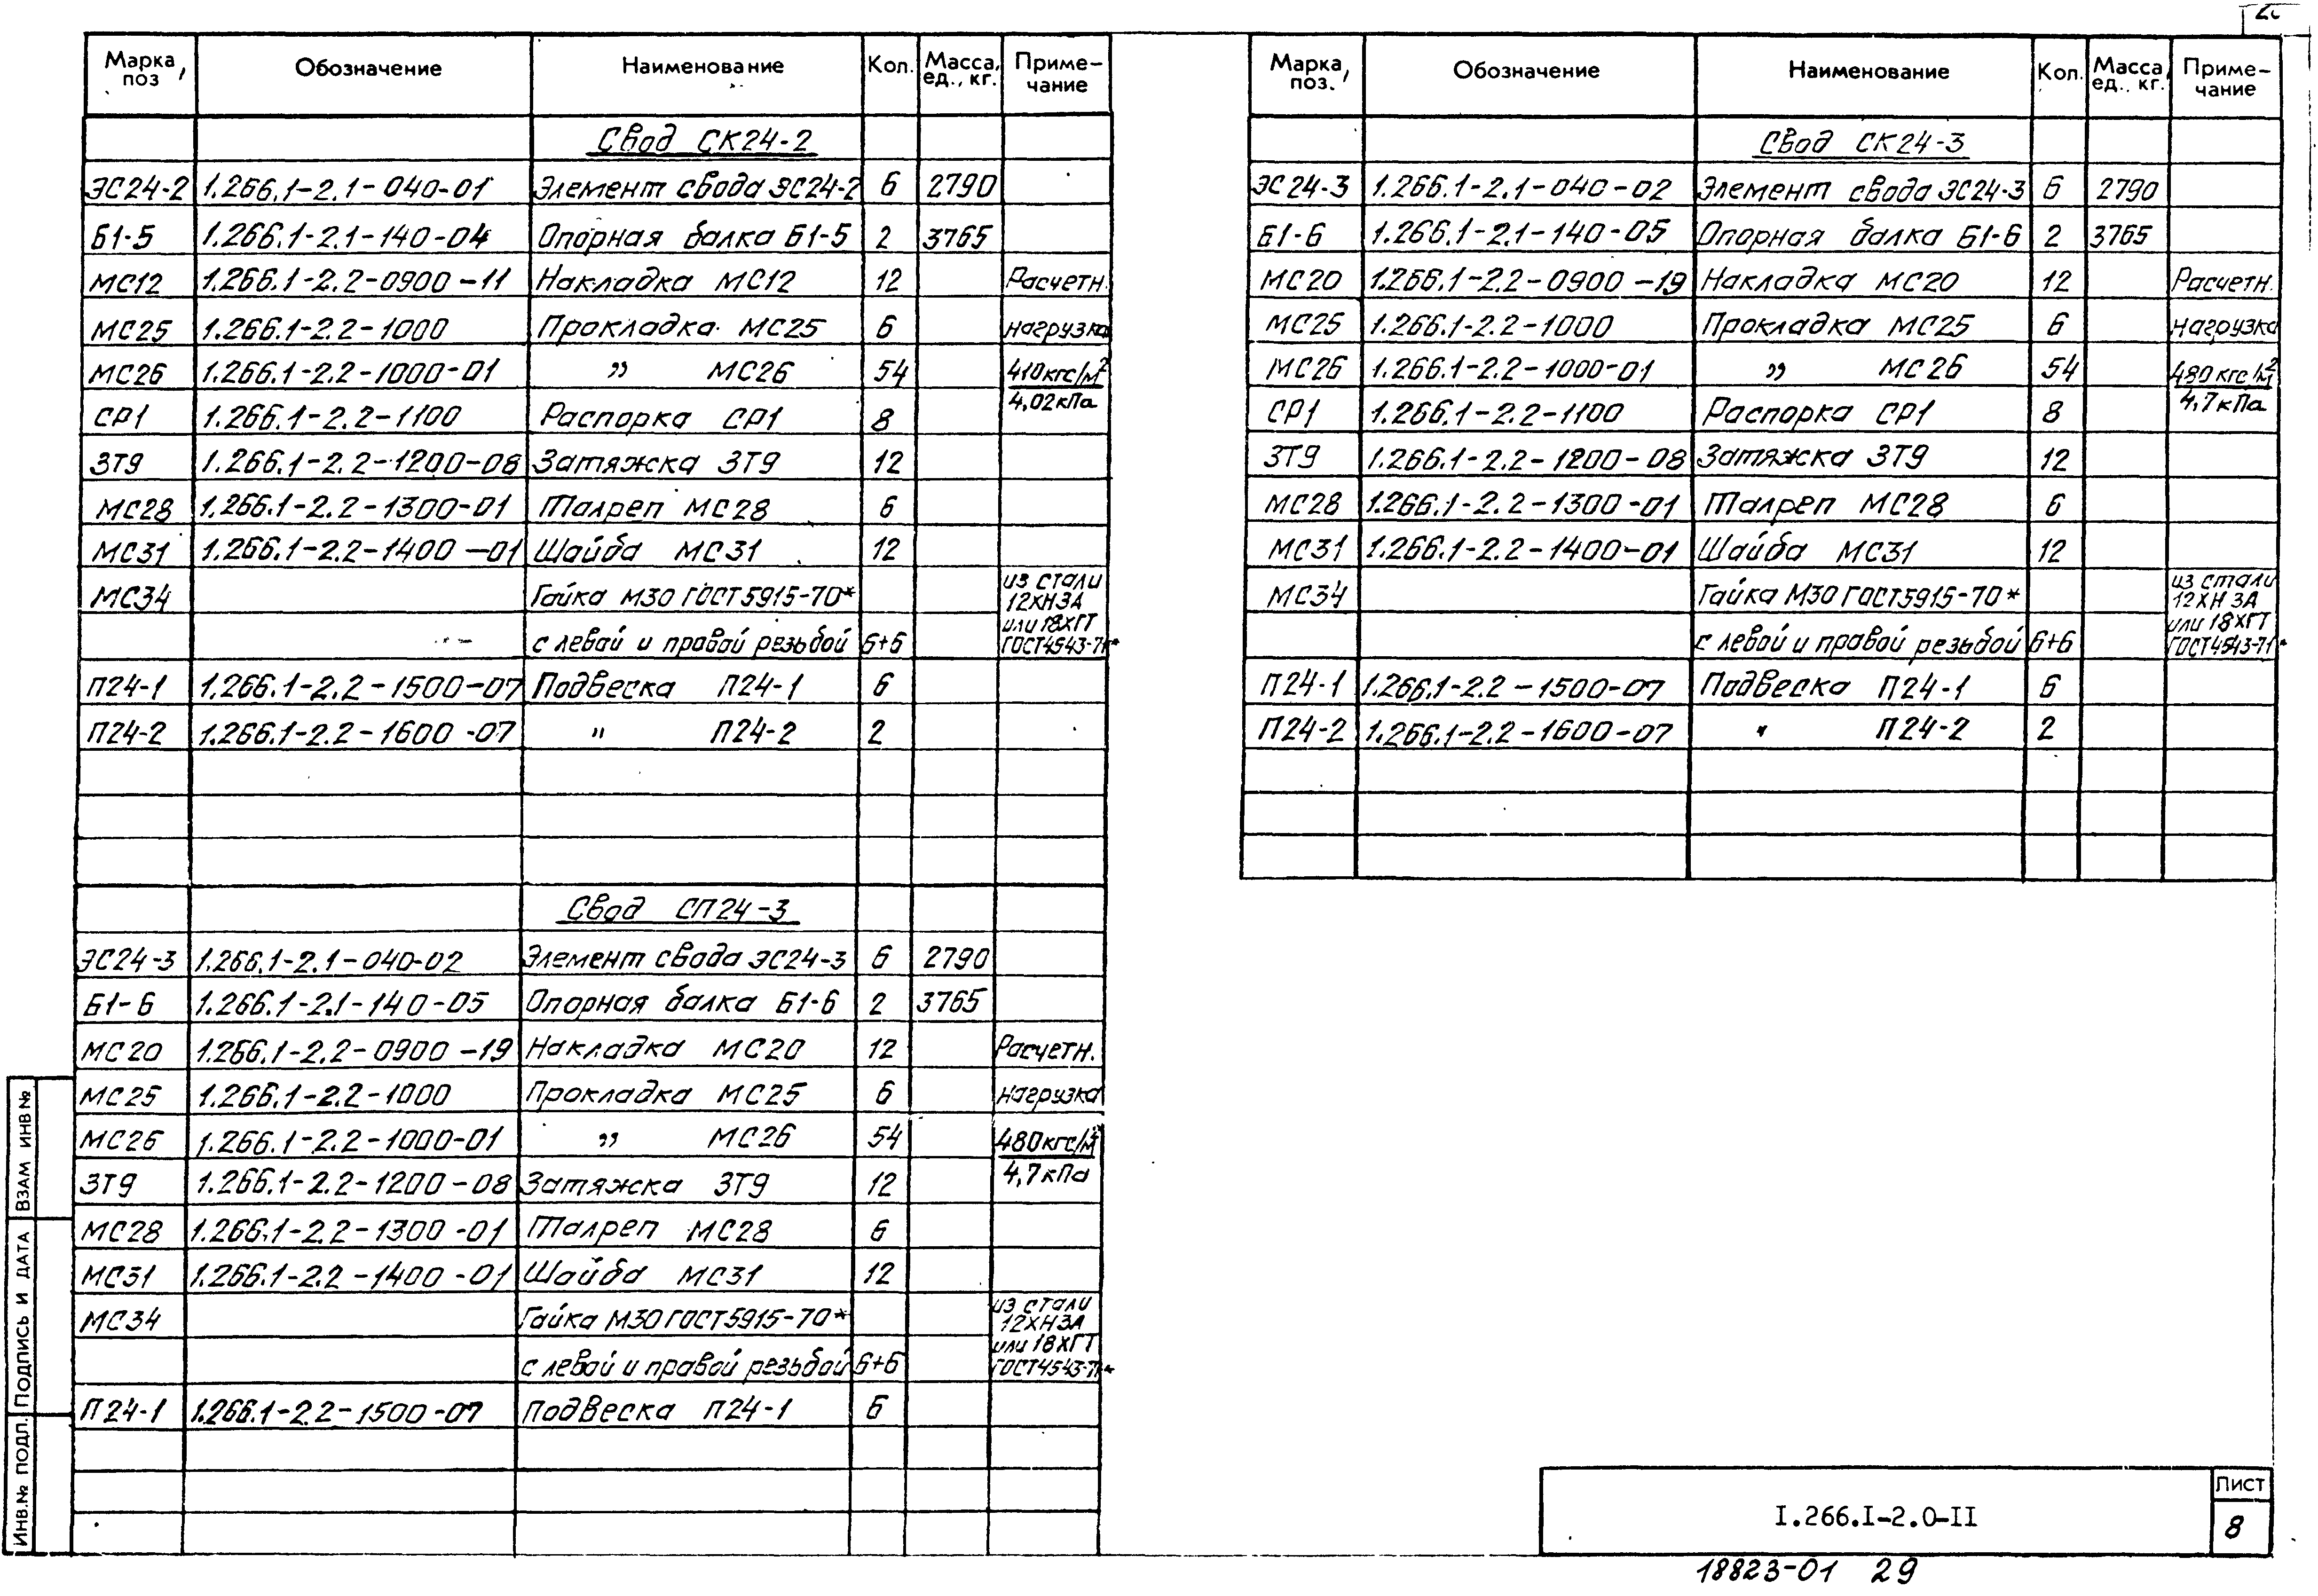 Марка, поз | Обозначение | Наименование | Кол. | Масса, ед., кг. | Приме-чание
Свод СК24-2
ЭС24-2 | 1.266.1-2.1-040-01 | Элемент свода ЭС24-2 | 6 | 2790
Б1-5 | 1.266.1-2.1-140-04 | Опорная балка Б1-5 | 2 | 3765
МС12 | 1.266.1-2.2-0900-11 | Накладка МС12 | 12 | Расчетн.
МС25 | 1.266.1-2.2-1000 | Прокладка МС25 | 6 | нагрузка
МС26 | 1.266.1-2.2-1000-01 | „ МС26 | 54 | 410 кгс/м²
СР1 | 1.266.1-2.2-1100 | Распорка СР1 | 8 | 4,02 кПа
ЗТ9 | 1.266.1-2.2-1200-08 | Затяжка ЗТ9 | 12
МС28 | 1.266.1-2.2-1300-01 | Талреп МС28 | 6
МС31 | 1.266.1-2.2-1400-01 | Шайба МС31 | 12
МС34 | Гайка М30 ГОСТ5915-70* | из стали 12ХН3А
с левой и правой резьбой | 6+6 | или 18ХГТ ГОСТ4543-71*
П24-1 | 1.266.1-2.2-1500-07 | Подвеска П24-1 | 6
П24-2 | 1.266.1-2.2-1600-07 | „ П24-2 | 2
Свод СП24-3
ЭС24-3 | 1.266.1-2.1-040-02 | Элемент свода ЭС24-3 | 6 | 2790
Б1-6 | 1.266.1-2.1-140-05 | Опорная балка Б1-6 | 2 | 3765
МС20 | 1.266.1-2.2-0900-19 | Накладка МС20 | 12 | Расчетн.
МС25 | 1.266.1-2.2-1000 | Прокладка МС25 | 6 | нагрузка
МС26 | 1.266.1-2.2-1000-01 | „ МС26 | 54 | 480 кгс/м²
ЗТ9 | 1.266.1-2.2-1200-08 | Затяжка ЗТ9 | 12 | 4,7 кПа
МС28 | 1.266.1-2.2-1300-01 | Талреп МС28 | 6
МС31 | 1.266.1-2.2-1400-01 | Шайба МС31 | 12
МС34 | Гайка М30 ГОСТ5915-70* | из стали 12ХН3А
с левой и правой резьбой | 6+6 | или 18ХГТ ГОСТ4543-71*
П24-1 | 1.266.1-2.2-1500-07 | Подвеска П24-1 | 6
Марка, поз. | Обозначение | Наименование | Кол. | Масса, ед., кг. | Приме-чание
Свод СК24-3
ЭС24-3 | 1.266.1-2.1-040-02 | Элемент свода ЭС24-3 | 6 | 2790
Б1-6 | 1.266.1-2.1-140-05 | Опорная балка Б1-6 | 2 | 3765
МС20 | 1.266.1-2.2-0900-19 | Накладка МС20 | 12 | Расчетн.
МС25 | 1.266.1-2.2-1000 | Прокладка МС25 | 6 | нагрузка
МС26 | 1.266.1-2.2-1000-01 | „ МС26 | 54 | 480 кгс/м²
СР1 | 1.266.1-2.2-1100 | Распорка СР1 | 8 | 4,7 кПа
ЗТ9 | 1.266.1-2.2-1200-08 | Затяжка ЗТ9 | 12
МС28 | 1.266.1-2.2-1300-01 | Талреп МС28 | 6
МС31 | 1.266.1-2.2-1400-01 | Шайба МС31 | 12
МС34 | Гайка М30 ГОСТ5915-70* | из стали 12ХН3А
с левой и правой резьбой | 6+6 | или 18ХГТ ГОСТ4543-71*
П24-1 | 1.266.1-2.2-1500-07 | Подвеска П24-1 | 6
П24-2 | 1.266.1-2.2-1600-07 | „ П24-2 | 2
Инв.№ подл. Подпись и дата Взам инв №
I.266.I-2.0-II
Лист
8
18823-01 29